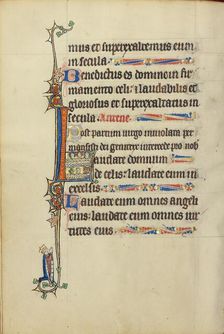 mus et superexaltemus eum
in secula
Benedictus es domine in fir
mamento celi: et laudabilis et
gloriosus et superexaltatus in
secula
Post partum virgo inviolata per
mansisti dei genitrix intercede pro nob
Laudate dominum
De celis: laudate eum in
excelsis
Laudate eum omnes angeli
eius: laudate eum omnes vir
tutes eius